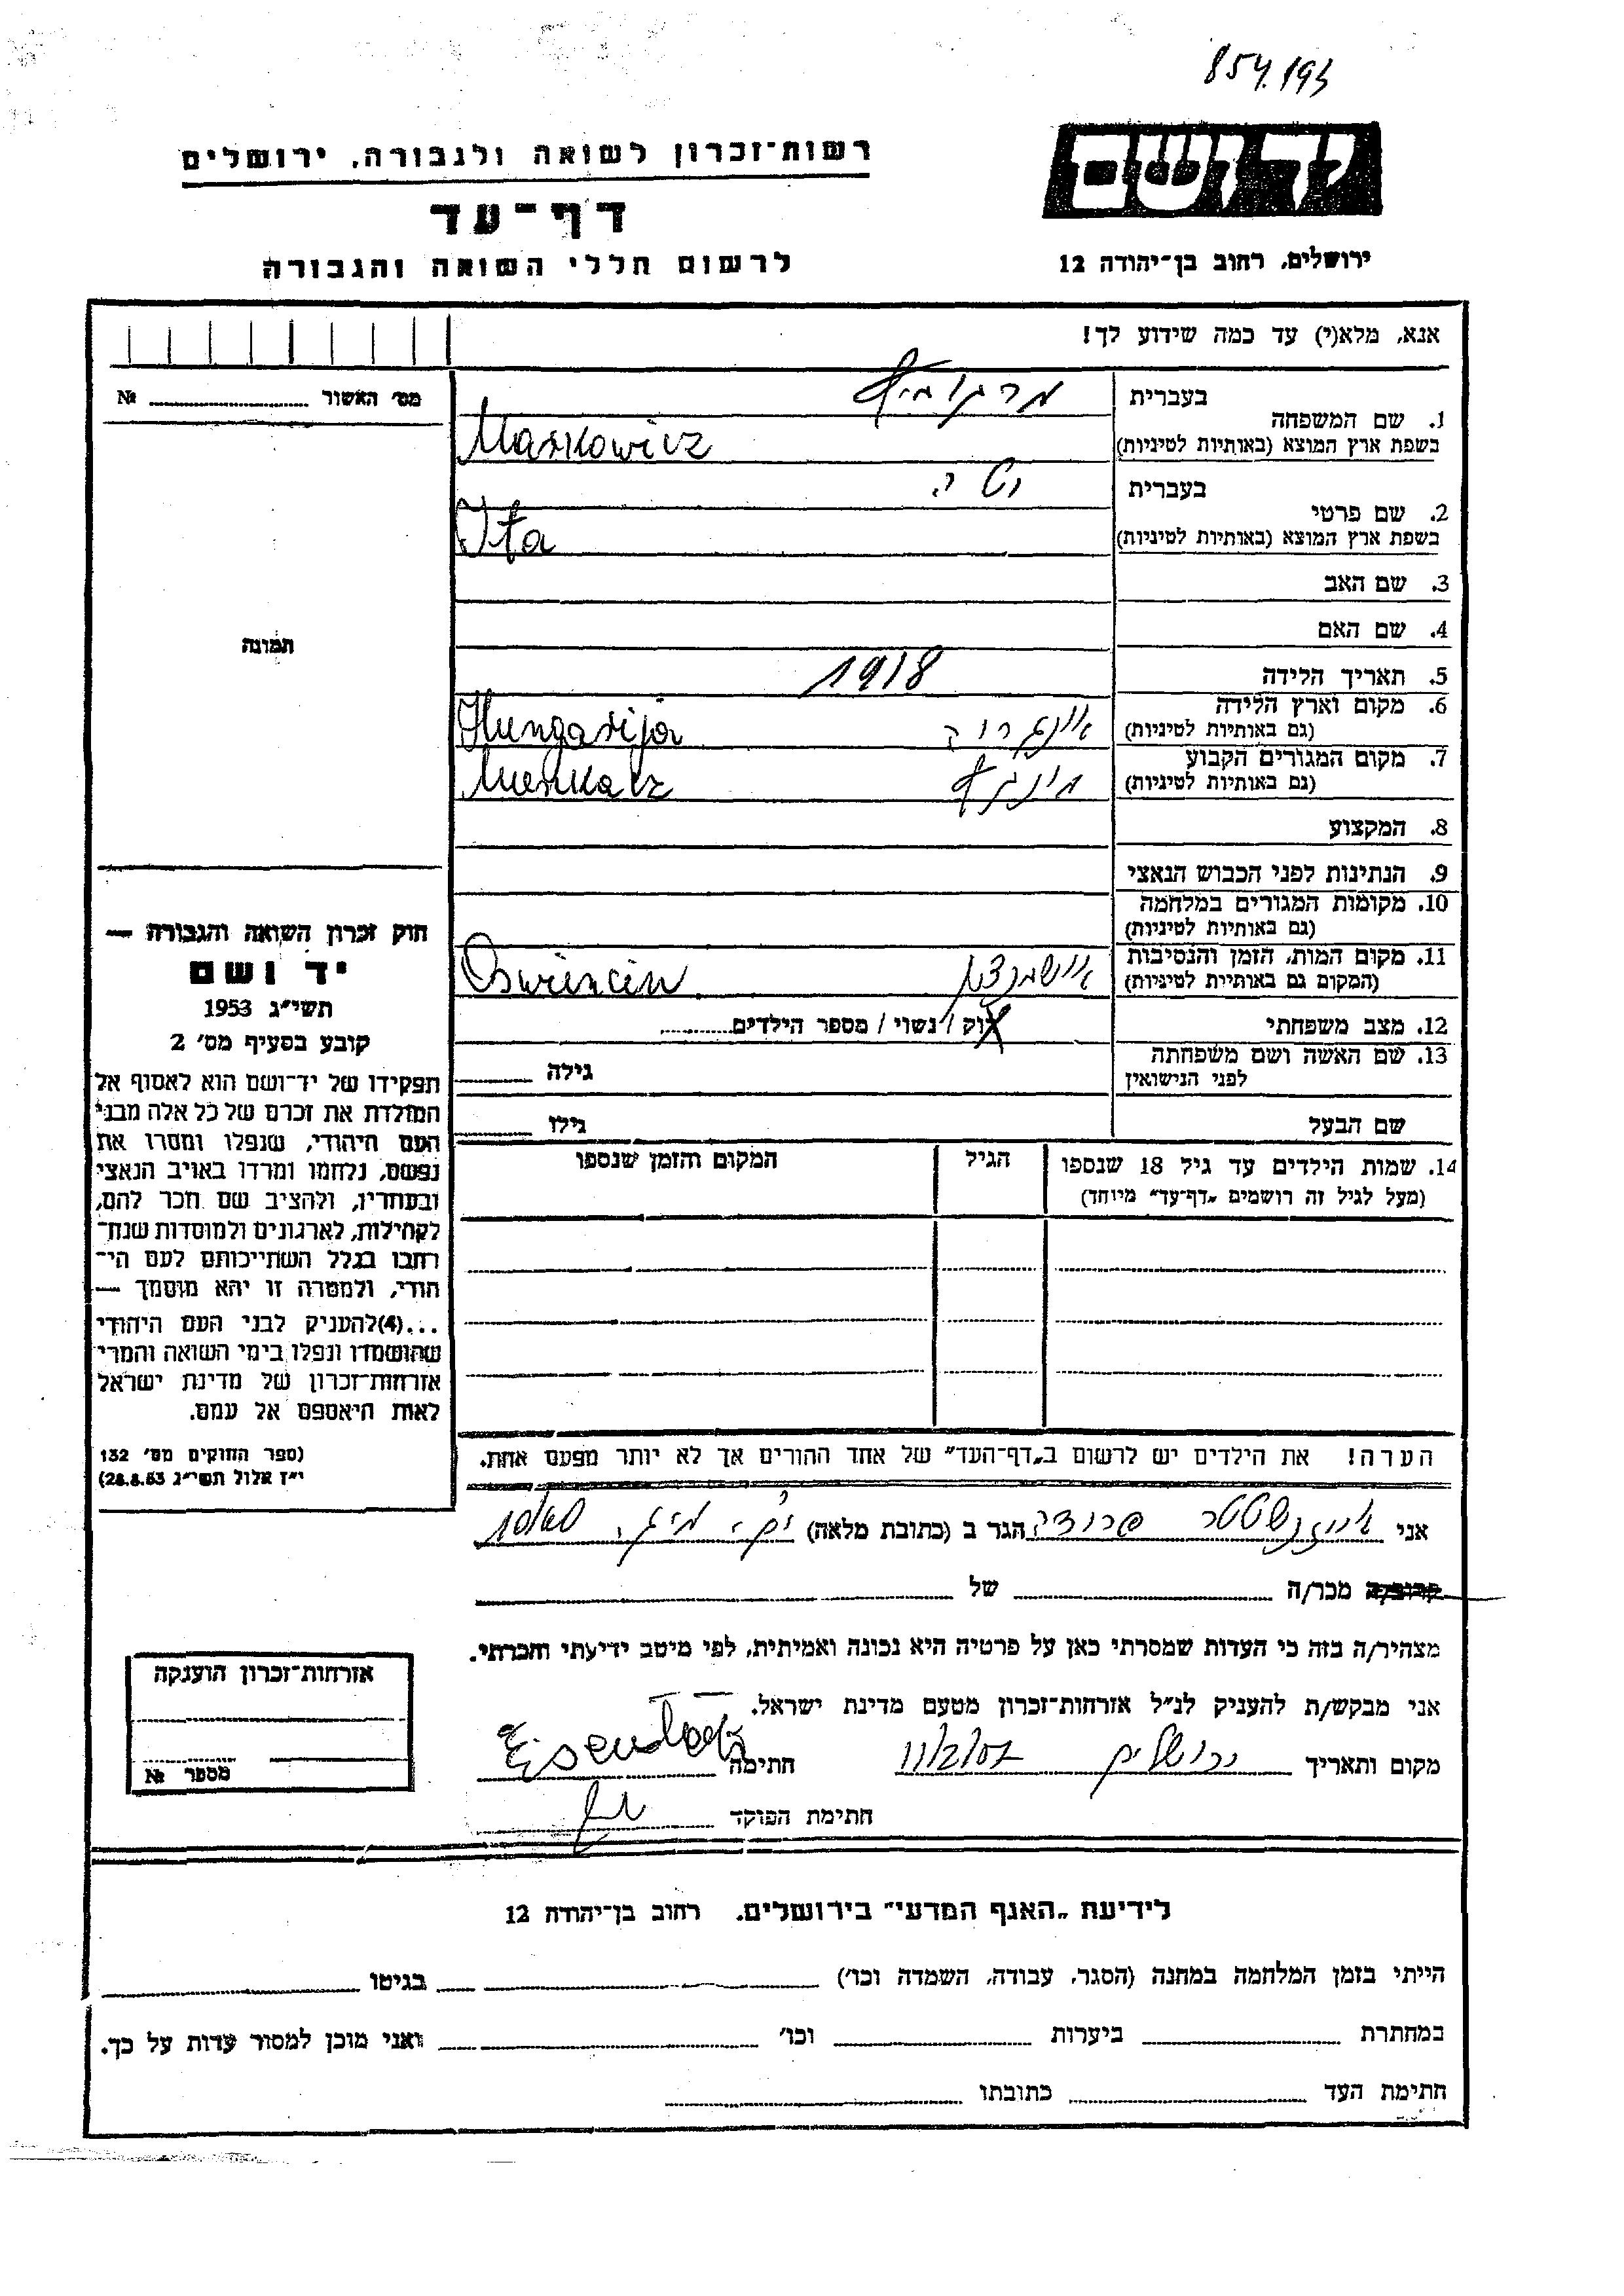 854.193
יד ושם
רשות־זכרון לשואה ולגבורה, ירושלים
דף־עד
לרשום חללי השואה והגבורה
ירושלים, רחוב בן־יהודה 12
אנא, מלא(י) עד כמה שידוע לך!
מס׳ האשור ........ №
תמונה
1. שם המשפחה בעברית
Markowicz
בשפת ארץ המוצא (באותיות לטיניות)
2. שם פרטי בעברית
Ita
בשפת ארץ המוצא (באותיות לטיניות)
3. שם האב
4. שם האם
5. תאריך הלידה 1918
6. מקום וארץ הלידה Hungarija
(גם באותיות לטיניות)
7. מקום המגורים הקבוע
(גם באותיות לטיניות)
8. המקצוע
9. הנתינות לפני הכבוש הנאצי
10. מקומות המגורים במלחמה
(גם באותיות לטיניות)
11. מקום המות, הזמן והנסיבות
(המקום גם באותיית לטיניות)
12. מצב משפחתי רוק / נשוי / מספר הילדים........
13. שם האשה ושם משפחתה
לפני הנישואין גילה
שם הבעל גילו
14. שמות הילדים עד גיל 18 שנספו הגיל המקום והזמן שנספו
(מעל לגיל זה רושמים „דף־עד״ מיוחד)
הערה! את הילדים יש לרשום ב„דף־העד״ של אחד ההורים אך לא יותר מפעם אחת.
חוק זכרון השואה והגבורה —
יד ושם
תשי״ג 1953
קובע בסעיף מס׳ 2
תפקידו של יד־ושם הוא לאסוף אל
המולדת את זכרם של כל אלה מבני
העם היהודי, שנפלו ומסרו את
נפשם, נלחמו ומרדו באויב הנאצי
ובעוזריו, ולהציב שם וזכר להם,
לקהילות, לארגונים ולמוסדות שנח־
רבו בגלל השתייכותם לעם הי־
הודי, ולמטרה זו יהא מוסמך —
...(4)להעניק לבני העם היהודי
שהושמדו ונפלו בימי השואה והמרי
אזרחות־זכרון של מדינת ישראל
לאות היאספם אל עמם.
(ספר החוקים מס׳ 132
י״ז אלול תשי״ג 28.8.53)
אני אייזנשטטר הגר ב (כתובת מלאה)
קרוב/ה מכר/ה ........ של ........
מצהיר/ה בזה כי העדות שמסרתי כאן על פרטיה היא נכונה ואמיתית, לפי מיטב ידיעתי והכרתי.
אני מבקש/ת להעניק לנ״ל אזרחות־זכרון מטעם מדינת ישראל.
מקום ותאריך ירושלים חתימה
חתימת הפוקד
אזרחות־זכרון הוענקה
מספר №
לידיעת „האגף המדעי״ בירושלים. רחוב בן־יהודה 12
הייתי בזמן המלחמה במחנה (הסגר, עבודה, השמדה וכו׳) ........ בגיטו ........
במחתרת ........ ביערות ........ וכו׳ ........ ואני מוכן למסור עדות על כך.
חתימת העד ........ כתובתו ........